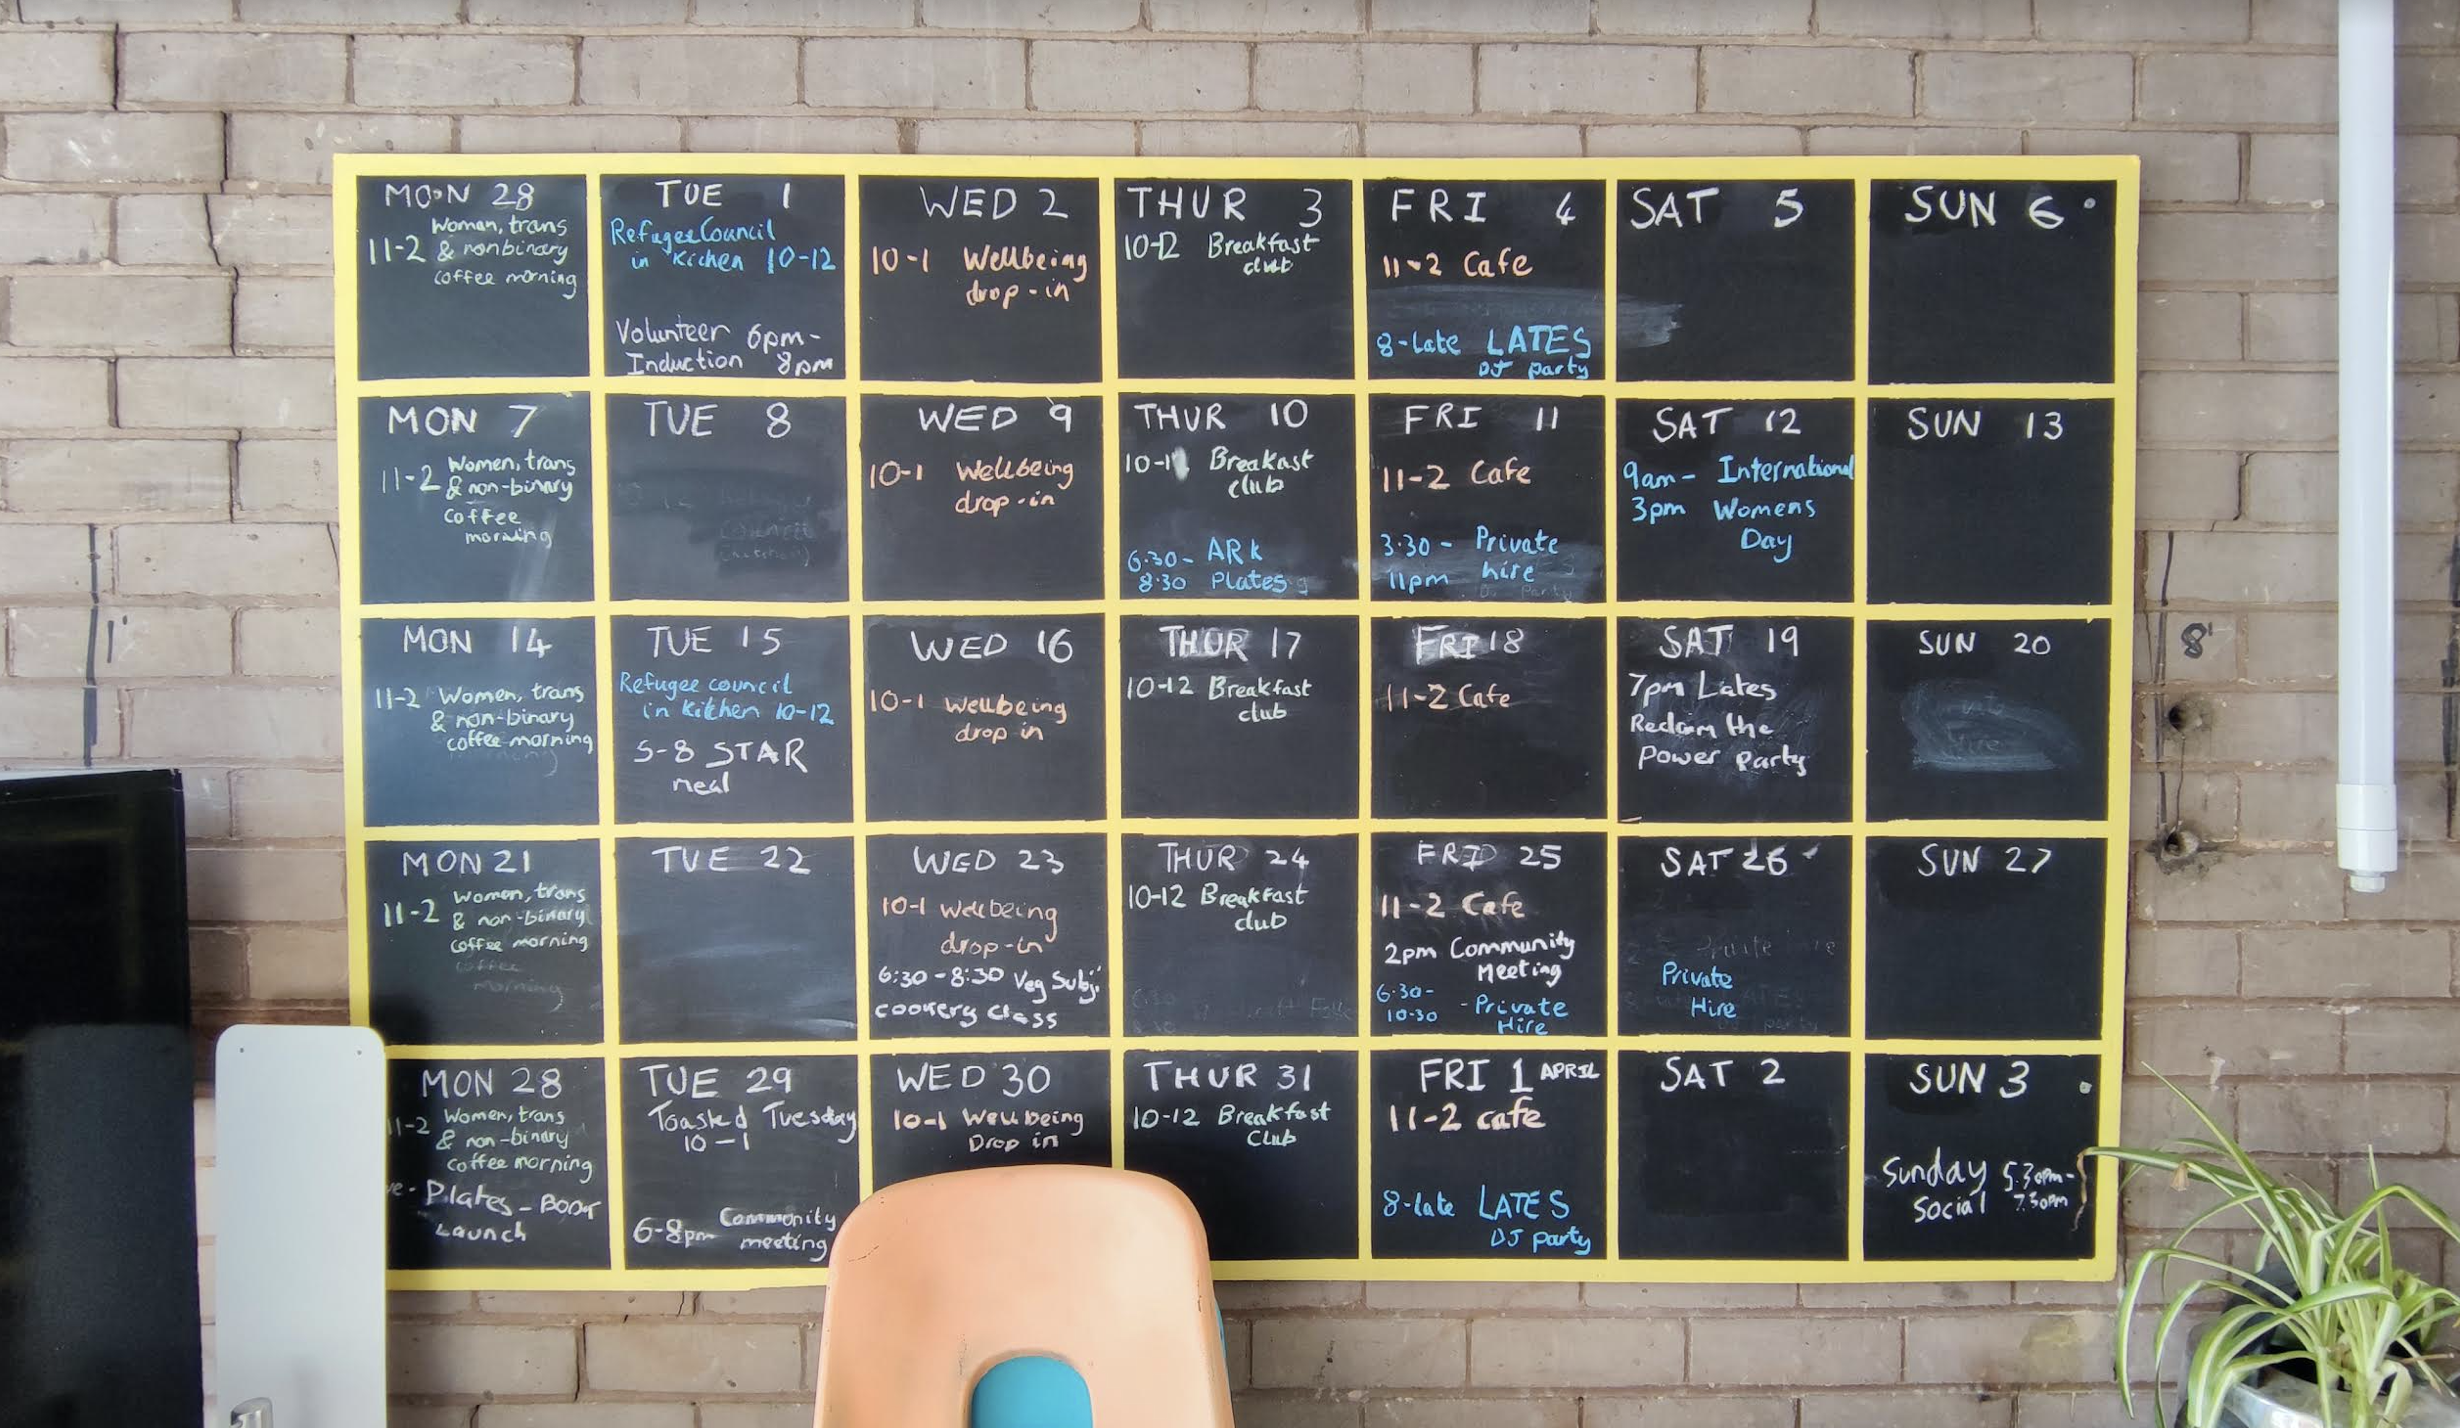 MON 28
Woman, trans
11-2 & nonbinary
coffee morning
TUE 1
Refugee Council
in Kichen 10-12
Volunteer 6pm-
Induction 8pm
WED 2
10-1 Wellbeing
drop-in
THUR 3
10-12 Breakfast
club
FRI 4
11-2 Cafe
8-late LATES
DJ party
SAT 5
SUN 6
MON 7
Women, trans
11-2 & non-binary
Coffee
morning
TUE 8
WED 9
10-1 Wellbeing
drop-in
THUR 10
Breakast
club
6.30- ARK
8.30 Plates
FRI 11
11-2 Cafe
3.30- Private
11pm hire
SAT 12
9am- International
3pm Womens
Day
SUN 13
MON 14
11-2 Women, trans
& non-binary
coffee morning
TUE 15
Refugee council
in kitchen 10-12
5-8 STAR
meal
WED 16
10-1 Wellbeing
drop in
THUR 17
10-12 Breakfast
club
FRI 18
11-2 Cafe
SAT 19
7pm Lates
Reclaim the
Power Party
SUN 20
MON 21
Women, trans
11-2 & non-binary
coffee morning
coffee
morning
TUE 22
WED 23
10-1 Wellbeing
drop-in
6:30-8:30 Veg Subji
cookery class
THUR 24
10-12 Breakfast
club
FRI 25
11-2 Cafe
2pm Community
Meeting
6.30-
10.30 - Private
Hire
SAT 26
Private
Hire
SUN 27
MON 28
11-2 Women, trans
& non-binary
coffee morning
Plates - Book
Launch
TUE 29
Toasted Tuesday
10-1
6-8pm Community
meeting
WED 30
10-1 Wellbeing
Drop in
THUR 31
10-12 Breakfast
Club
FRI 1 APRIL
11-2 cafe
8-late LATES
DJ party
SAT 2
SUN 3
Sunday 5.30pm-
Social 7.30pm
8'
1'